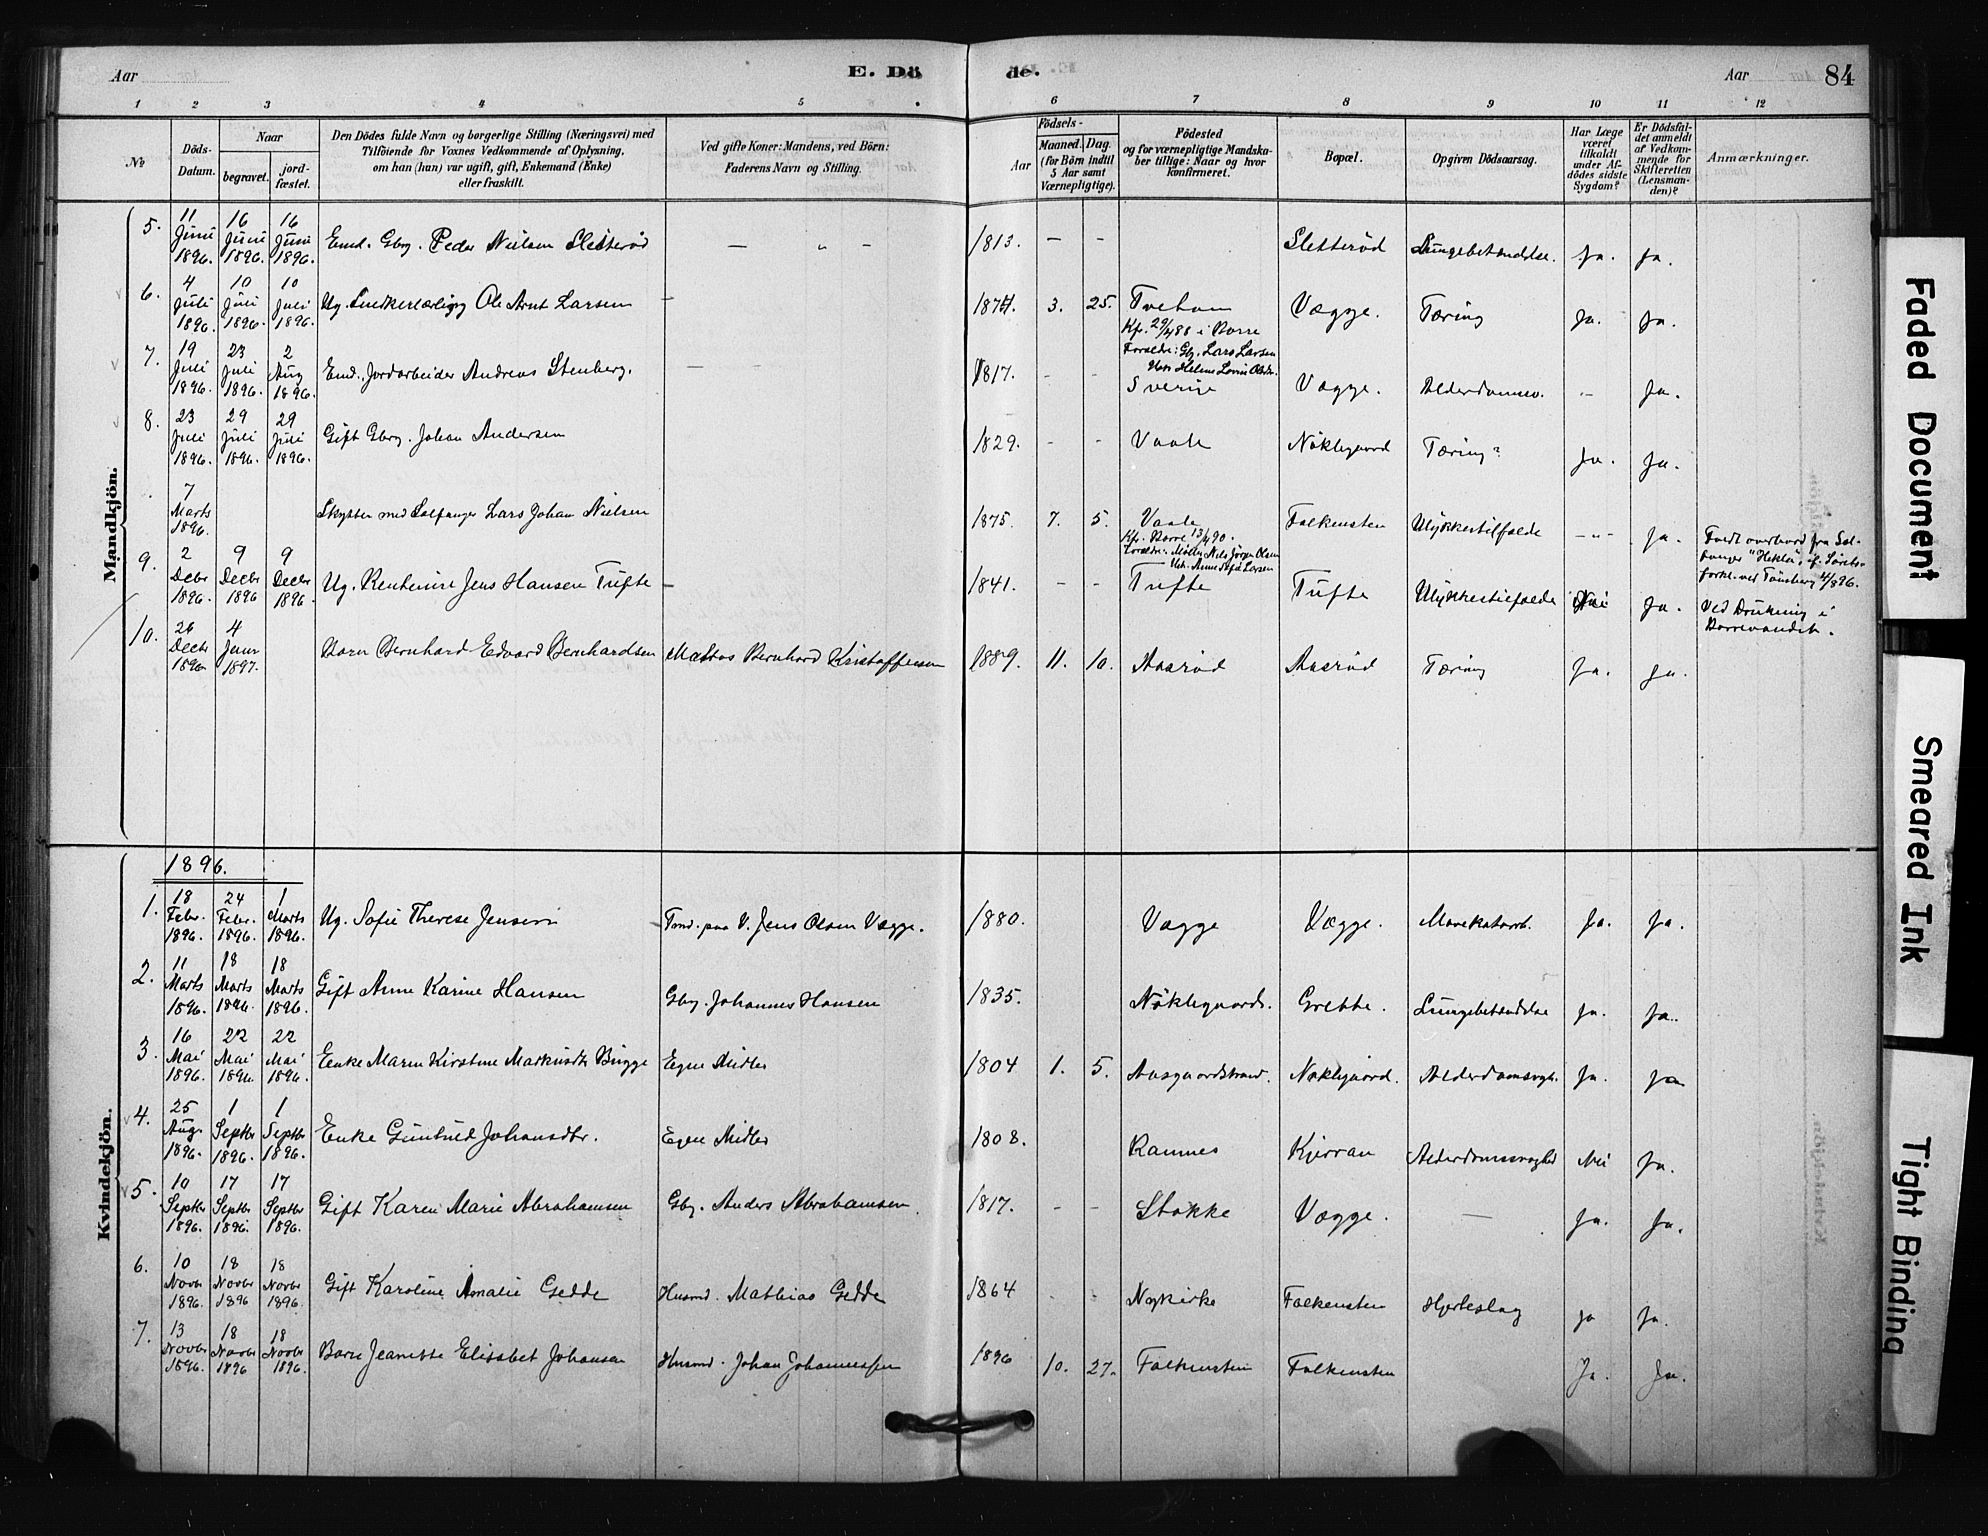 Aar
E. Dö
de.
Aar
84
1 2 3 4 5 6 7 8 9 10 11 12
№
Döds-
Datum.
Naar
begravet.
jord-
fæstet.
Den Dödes fulde Navn og borgerlige Stilling (Næringsvei) med
Tilföiende for Voxnes Vedkommende af Oplysning,
om han (hun) var ugift, gift, Enkemand (Enke)
eller fraskilt.
Ved gifte Koner: Mandens, ved Börn:
Faderens Navn og Stilling.
Födsels-
Aar
Maaned.
Dag.
(for Börn indtil
5 Aar samt
Værnepligtige).
Födested
og for værnepligtige Mandska-
ber tillige: Naar og hvor
konfirmeret.
Bopæl.
Opgiven Dödsaarsag.
Har Læge
været
tilkaldt
under Af-
dödes sidste
Sygdom?
Er Dödsfal-
det anmeldt
af Vedkom-
mende for
Skifteretten
(Lensman-
den)?
Anmærkninger.
Mandkjön.
5. 11 Juni 1896. 16 Juni 1896. 16 Juni 1896. Emd. Gbrg. Peder Nielsen Sletteröd — „ — 1813. — — Sletteröd Lungebetændelse. Ja. Ja.
6. 4 Juli 1896. 10 Juli 1896. 10 Juli 1896. Ug. Snedkerlærling Ole Arnt Larsen — 1874. 3. 25. Tveham Vægge. Tæring Ja. Ja.
Kf. 29/4 88 i Borre
Foræld: Gb. Lars Larsen
7. 19 Juli 1896. 23 Juli 1896. 2 Aug 1896. Emd. Jordarbeider Andreas Stenberg. 1817. - - Sverige Vægge. Alderdomssv. - Ja.
8. 23 Juli 1896. 29 Juli 1896. 29 Juli 1896. Gift Gbrg. Johan Andersen 1829. - - Vaale Nöklegaard Tæring? Ja. Ja.
7 Marts 1896. Skytter med Selfanger Lars Johan Nielsen 1875. 7. 5. Vaale Falkensten Ulykkestilfælde -"- Ja. Faldt overbord fra Sel-
Kf. Borre 13/4 90.
Foræld: Möller Nils Jörgen Olsen
Ust. Anne Sofie Larsen
fanger "Hekla", if. Sörets-
forkl. ved Tönsberg 4/8 96.
9. 2 Decbr 1896. 9 Decbr 1896 9 Decbr 1896. Ug. Rentenist Jens Hansen Tufte — 1841. - - Tufte Tufte Ulykkestilfælde Nei Ja. Ved Drukning i
Borrevandet.
10. 26 Decbr 1896 4 Januar 1897. Barn Bernhard Edvard Bernhardsen Matros Bernhard Kristoffersen 1889. 11. 10. Aasröd Aasröd Tæring Ja. Ja.
Kvindekjön.
1896.
1. 18 Febr. 1896. 24 Febr. 1896. 1 Marts 1896. Ug. Sofie Therese Jensen Tmd. paa V. Jens Olsen Vægge. 1880. Vægge Vægge. Mavekatarrh. Ja. Ja.
2. 11 Marts 1896. 18 Marts 1896. 18 Marts 1896. Gift Anne Karine Hansen Gbrg. Johannes Hansen 1835. Nöklegaard. Grette. Lungebetændelse Ja. Ja.
3. 16 Mai 1896. 22 Mai 1896. 22 Mai 1896. Enke Maren Kirstine Markusdtr Bugge Egne Midler 1804 1. 5. Aasgaardstrand. Nöklegaard. Alderdomsvgh. Ja. Ja
4. 25 Aug. 1896. 1 Septbr 1896. 1 Septbr 1896. Enke Gunhild Johansdtr. Egne Midler 1808. Ramnes Kjerran Alderdomssvaghed Nei Ja.
5. 10 Septbr 1896. 17 Septbr 1896. 17 Septbr 1896. Gift Karen Marie Abrahamsen Gbg. Anders Abrahamsen. 1817. - - Stokke Vægge. — Ja. Ja.
6. 10 Novbr 1896. 18 Novbr 1896 18 Novbr 1896. Gift Karoline Amalie Gedde Husmd. Mathias Gedde 1864 - - Nykirke Falkensten Hjerteslag Ja Ja.
7. 13 Novbr 1896. 18 Novbr 1896 18 Novbr 1896. Barn Jeanette Elisabet Johansen Husmd. Johan Johannessen 1896 10. 27. Falkensten Falkensten Ja. Ja.
Faded Document
Smeared Ink
Tight Binding